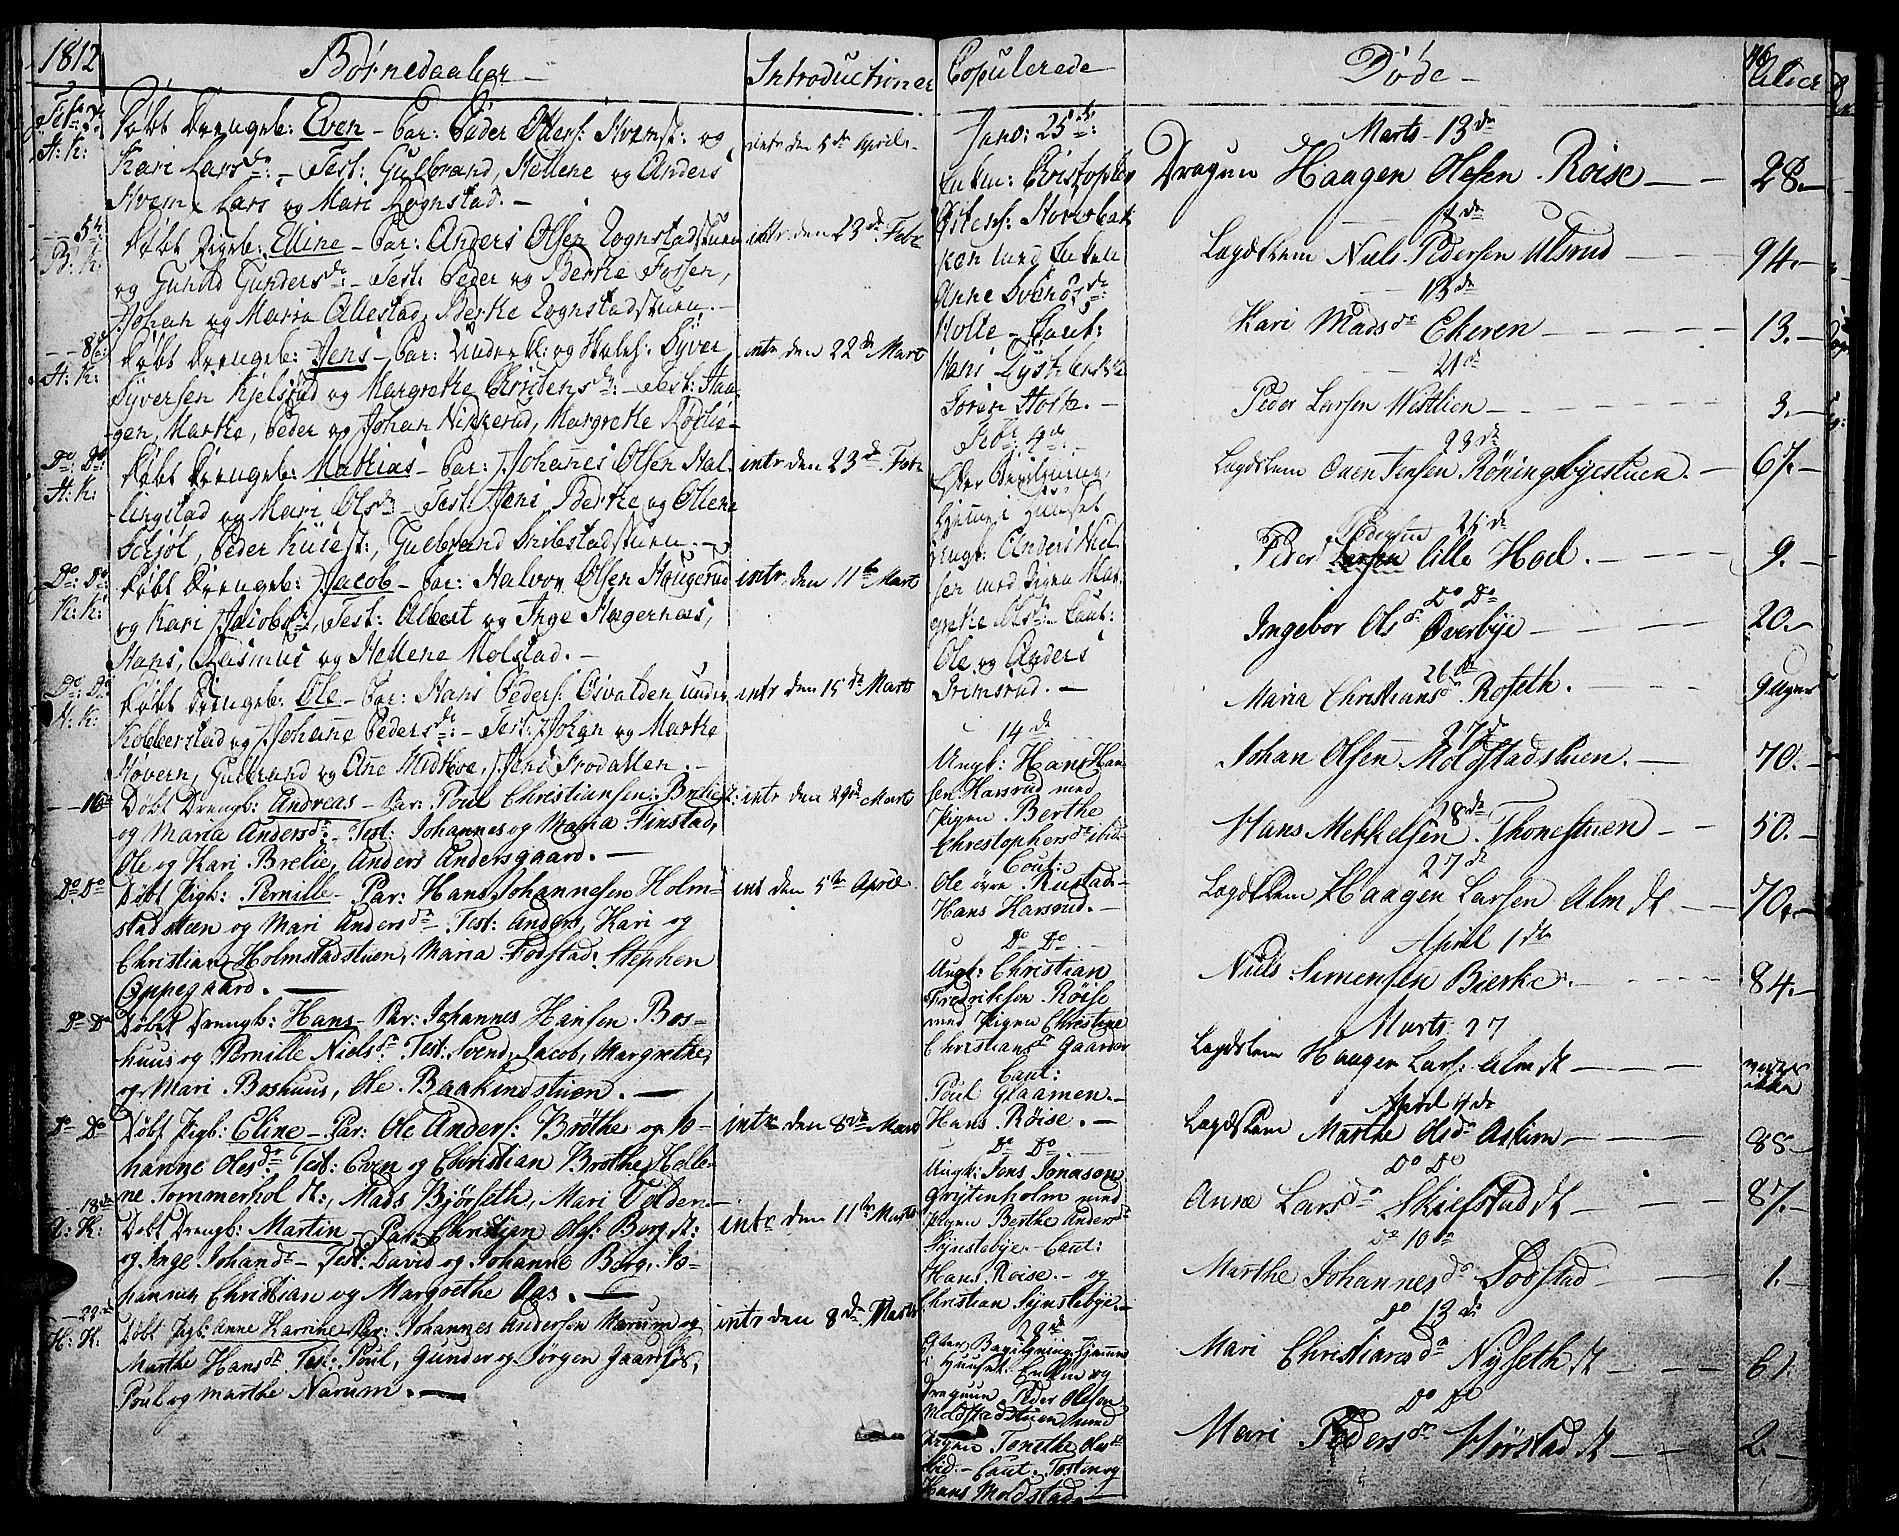 1812
Børnedaaber
Introductioner
Febr: 2
H: K:
Døbt Drengeb: Even - Par: Peder Ollers: Hvemst: og
Kari Larsdr: - Test: Gulbrand, Hellene og Anders
Hvem, Lars og Mari Lognstad. -
intr den 5te April
5te
B: K:
Døbt Pigeb: Elline - Par: Anders Olsen Lognstadstuen
og Gunild Gundersdr: - Test: Peder og Berthe Fossen,
Johan og Maria Allestad, Berthe Lognstadstuen. -
intr den 23de Febr
H: K:
Døbt Drengeb: Jens - Par: Underof: og Syver
Syversen Kjelsrud og Margrethe Christensdr: - Test: Haa-
gen, Marthe, Peder og Johan Nikkerud, Margrethe
intr den 22de Mart
Do: Do:
H: K:
Døbt Drengeb: Mathias - Par: Johannes Olsen Hal-
lingstad og Mari Olsdr: - Test: Jens, Berthe og Ollene
Schjøl, Peder Gulbrand
intr den 23de Febr
Do: Do:
K: K:
Døbt Drengeb: Jacob - Par: Halvor Olsen Haugerud
og Kari Jacobsdr, Test: Albert og Inge Hagernæs,
Hans, Rasmus og Hellene Molstad. -
intr den 11te Mart
Do: Do:
H: K:
Døbt Drengeb: Ole - Par: Hans Peders: Osvalden under
Kobberstad og Johanne Pedersdr: - Test: Johan og Marthe
Høvern, Gulbrand og Ane Midthoe, Jens Frodallen. -
intr den 15de Marts
16de
Døbt Drengb: Andreas - Par: Poul Christiansen:
og Maria Andersdr - Test: Johannes og Maria Finstad,
Ole og Kari Brelie, Anders Andersgaard. -
intr den 29de Marts
Do Do
Døbt Pigb: Pernille - Par: Hans Johannesen Holm-
stadstuen og Mari Andersdr Test: Anders, Kari og
Christian Holmstadstuen, Maria Fodstad, Stephen
Oppegaard. -
int den 5te April
Do Do
Døbt Drengb: Hans - Par: Johannes Hansen Bos-
huus og Pernille Nielsdr Test: Svend, Jacob, Margrethe,
og Mari Boshuus, Ole Baakindstuen. -
Do Do
Døbt Pigb: Eline - Par: Ole Anders: Brøthe og Jo-
hanne Olesdr: Test: Even og Christian Brøthe, Helle-
ne Sommerhol dt:, Mads Bjørseth, Mari Volden -
intr den 8de Marts
18de
K:
Døbt Drengb: Martin - Par: Christian Ols: Berg dt:
og Inge Johandr - Test: David og Johanne Berg, Jo-
hannes Christian og Margrethe Aas. -
intr den 11te Marts
H: K:
Døbt Pigb: Anne Karrine - Par: Johannes Andersen Narum og
Marthe Hansdr Test: Poul, Gunder og Jørgen
Poul og Marthe Narum. -
intr den 8de Marts
Copulerede
Janv: 25de:
Enkem: Christopher
med Enken
Anne
- Caut:
Hans
Febr: 4de
Efter Bevilning
hjemme i Huuset
Ungk: Anders Niel-
sen med Pigen Mar-
grethe Olsdr - Caut:
Ole og Anders
Grimsrud. -
14de
Ungk: Hans Han-
sen Harsrud med
Pigen Berthe
Christophersdr
Caut:
Ole øvre Rustad -
Hans Harsrud. -
Do Do
Ungk: Christian
Fredriksen Røise
med Pigen Christine
Christiansdr Gaarder
Caut:
Poul Glaamen. -
Hans Røise. -
Do Do
Ungk: Jens Jonasen
Grytenholm med
Pigen Berthe Andersdr
Synstebye - Caut:
Hans Røise. - og
Christian Synstebye. -
28de
Efter Bevilgning hjemme
i Huuset Enkem og
Dragoun Peder Olsen
Moldstadstuen med
Pigen Tonethe Olsdr
- Caut. Tosten og
Hans Moldstad. -
Døde -
Alder
Marts 13de
Dragun Haagen Olesen Roise - 28. -
Lægdslem Niels Pedersen Ulsrud 94. -
13de
Kari Madsdr Ekeren 13. -
21de
Peder Larsen Westlien 3. -
23de
Lægdslem Oven Jensen Røningsbyestuen. - 67. -
25de
Pedersen
Peder Larsen lille Hoel. - 9. -
Do Do
Ingebor Olsdr Overbye 20. -
26de
Maria Christiansdr Roseth. 9 Uger
27de
Johan Olsen Moldstadstuen. 70. -
28de
Hans Mekkelsen Thonstuen 50. -
27de
Lægdslem Haagen Larsen Alm dt 70. -
April 1de
Niels Simensen Bierke. 84. -
Marts 27
Lægdslem Haagen Lars: Alm dt ikke
April
Lægdslem Marthe Olsdr Askim 88 -
Do Do
Anne Larsdr Skiefstad dt 87. -
Do 10de
Marthe Johannesdr Fodstad 1. -
Do 13de
Mari Christiansdr Nyseth dt 61.
Do Do
Mari Pedersdr Hørstad dt 2 -